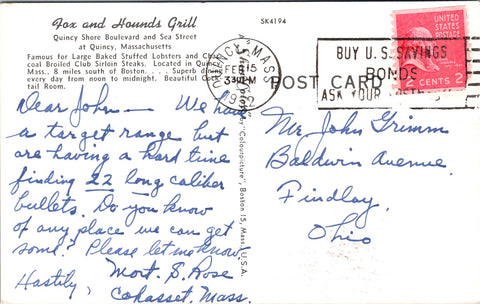 Fox and Hounds Grill
Quincy Shore Boulevard and Sea Street
at Quincy, Massachusetts
Famous for Large Baked Stuffed Lobsters and
coal Broiled Club Sirloin Steaks. Located in Quincy
Mass., 8 miles south of Boston. . . . Superb dining
every day from noon to midnight. Beautiful Cock-
tail Room.
SK4194
QUINCY, MASS.
FEB 15
3 30 PM
BUY U.S. SAVINGS
BONDS
ASK YOUR
UNITED STATES
POSTAGE
2 CENTS 2
POST CARD
"Colourpicture", Boston 15, Mass., U.S.A.
Dear John — We have
a target range but
are having a hard time
finding 22 long caliber
bullets. Do you know
of any place we can get
some? Please let me know.
Hastily, Mort. S. Rose
Cohasset, Mass.
Mr. John Grimm
Baldwin Avenue
Findlay,
Ohio